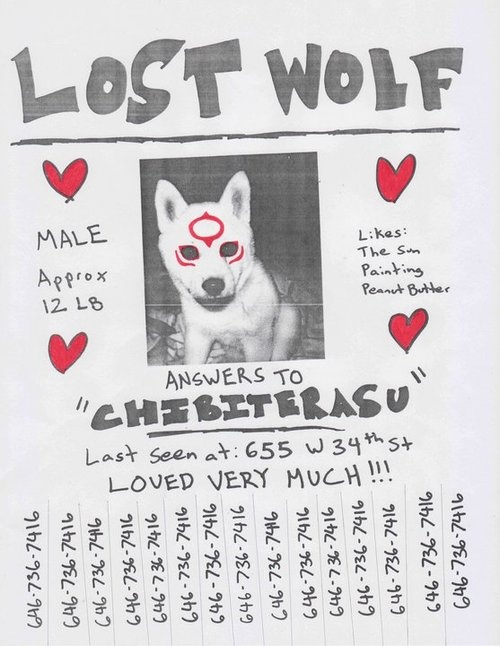 LOST WOLF
MALE
Approx
12 LB
Likes:
The Sun
Painting
Peanut Butter
ANSWERS TO
"CHIBITERASU"
Last seen at: 655 W 34th St
LOVED VERY MUCH!!!
646-736-7416
646-736-7416
646-736-7416
646-736-7416
646-736-7416
646-736-7416
646-736-7416
646-736-7416
646-736-7416
646-736-7416
646-736-7416
646-736-7416
646-736-7416
646-736-7416
646-736-7416